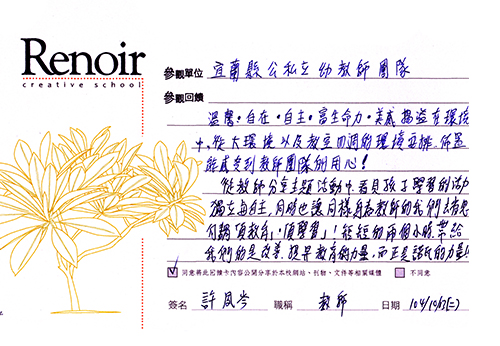 Renoir
creative school
參觀單位 宜蘭縣公私立幼教師團隊
參觀回饋
溫馨。自在。自主。富生命力。美感 洋溢在環境
中。從大環境以及教室四週的環境安排、佈置
能感受到教師團隊的用心！
從教師分享主題活動中，看見孩子學習的活力
獨立與自主，同時也讓同樣身為教師的我們
短短的兩個小時，帶給
我們的是改革、提昇教育的力量，而正是
同意將此回饋卡內容公開分享於本校網站、刊物、文件等相關媒體 不同意
簽名 許鳳岑 職稱 教師 日期 104/10/13(二)